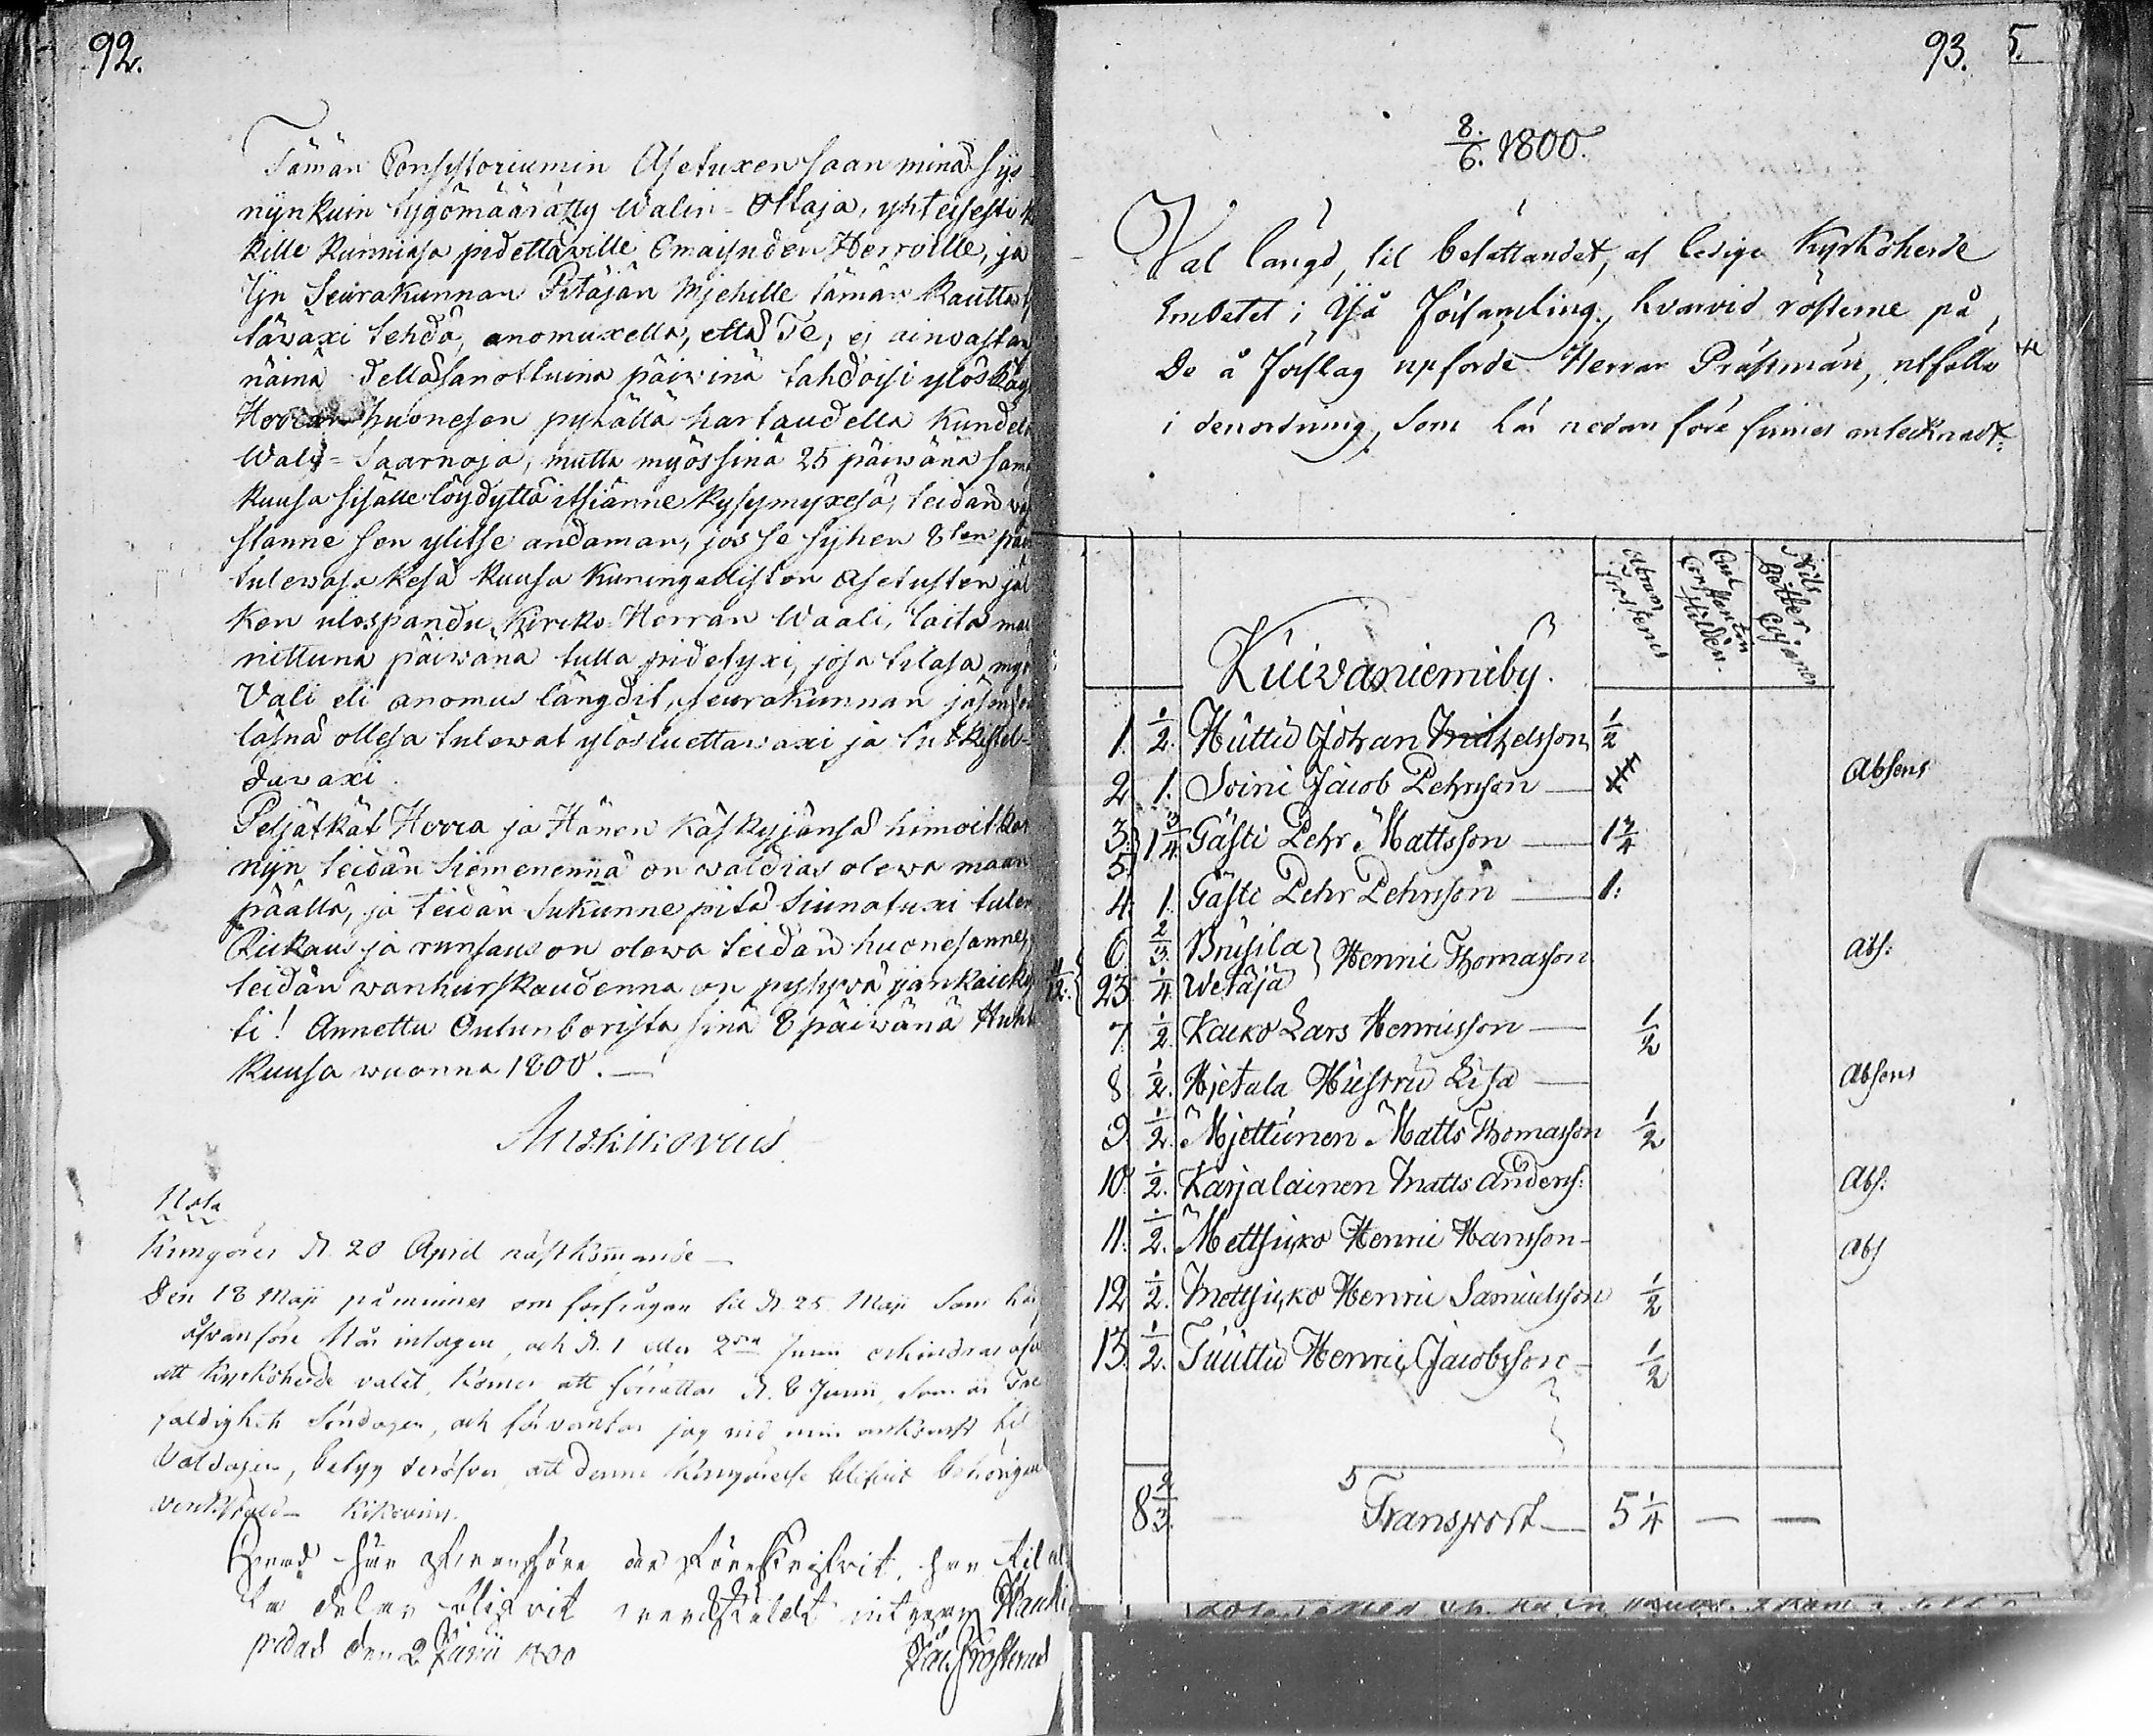 92.
Tämän Consistoriumin Asetuxen saan minä
nijnkuin tygömäärätty Walin-Ottaja, yhteisesti
kille kunniasa pidettäville Omaisuden Herroille, ja
Ijn Seurakunnan Pitäjän Mjehille tämän kautta
täwäxi tehdä, anomuxella, että Te, ej ainoastans
näinä edelläsanottuina päiwinä tahdoisi ylöskäydä
Herran huonesen pyhällä hartaudella kundele
Wali-Saarnoja, mutta myös sinä 25 päiwänä sam
kuusa sisälle löydyttä itsiänne kysymyxesä, teidän
stanne sen ylitse andaman, jos se sijhen 8ten päi
tulewasa Kesä kuusa Kuningallisten Asetusten jäl
ken ulospandu Kircko-Herran Waali, taita mai
nittuna päiwänä tulla pidetyxi, josa tilasa myös
Vali eli anomus längdit, seurakunnan jäsenden
läsnä ollesa tulewat ylösluettawaxi ja tutkistel-
duwaxi.
Peljätkät Herra ja Hänen käskyjänsä himoitkat
nijn teidän Siemenennä on waldias olewa maan
päällä, ja teidän Sukunne pitä siunatuxi tulem
Rickaus ja runsaus on olewa teidän huonesannes,
teidän wanhurskaudenna on pysywä ijankaicki
ti! Annettu Oulunborista sinä 8 päiwänä Huhti
Kuusa wuonna 1800.
Nota
Kungöres d. 20 April nästkommande
Den 18 Maji påminnes om förfrågan til d. 25 Maji som här
åfvanföre står intagen, och d. 1 eller 2dra Junii
att Kyrkoherde valet, kommer att förrättas d. 8 Junii, som är Tre
faldighets Söndagen, och förväntar jag vid min ankomst til
Valdagen, betyg deröfver, att denne Kungörelse blifvit behörigen
verkstäld
Hvad här ofvanföre är föreskrifvit, har til al
la delar blifvit verkstäldt intygar Hauki
pudas den 2 Junii 1800
Frosterus
93. 5.
8/6. 1800.
Val längd, til besättandet, af lediga Kyrkoherde
Embetet i Ijå Församling, hvarvid rösterne på
De å Förslag upförde Herrar Prästmän, utfalla
i den ordning, som här nedan före finnes antecknadt.
Kuivaniemi by.
Abram Frosterus
Carl Hildén
Nils Cajanus
1. 1/2. Huttu Johan Michelsson 1/2
2 1. Soini Jacob Pehrsson — Absens
3. 5. 1 3/4. Gästi Pehr Mattsson — 1 3/4
4. 1. Gästi Pehr Pehrsson — 1:
6. 2/3. Brusila } Henric Thomasson Abs:
11/12. 23. 1/4. Wetäjä
7. 1/2. Kaiko Lars Henricsson — 1/2
8. 1/2. Hjetala Hustru Lisa — Absens
9. 1/2. Mjettunen Matts Thomasson 1/2
10. 1/2. Karjalainen Matts Anders: Abs:
11. 1/2. Mettsicko Henric Hansson Abs
12 1/2. Mettsicko Henric Samuelsson 1/2
13. 1/2. Tuuttu Henric Jacobsson 1/2
8 2/3. Transport — 5 1/4 — —